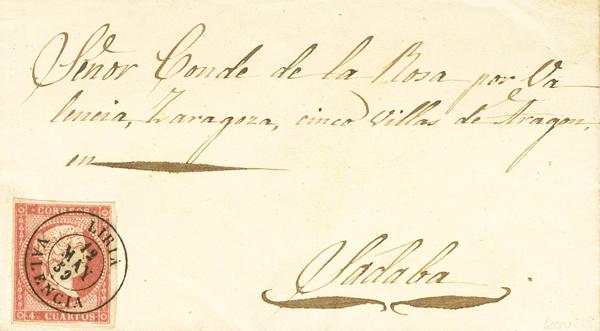 Señor Conde de la Rosa por Va
lencia, Zaragoza, cinco Villas de Aragon,
en
Sadaba
CORREOS
LIRIA
12
MAY
59
VALENCIA
4. CUARTOS